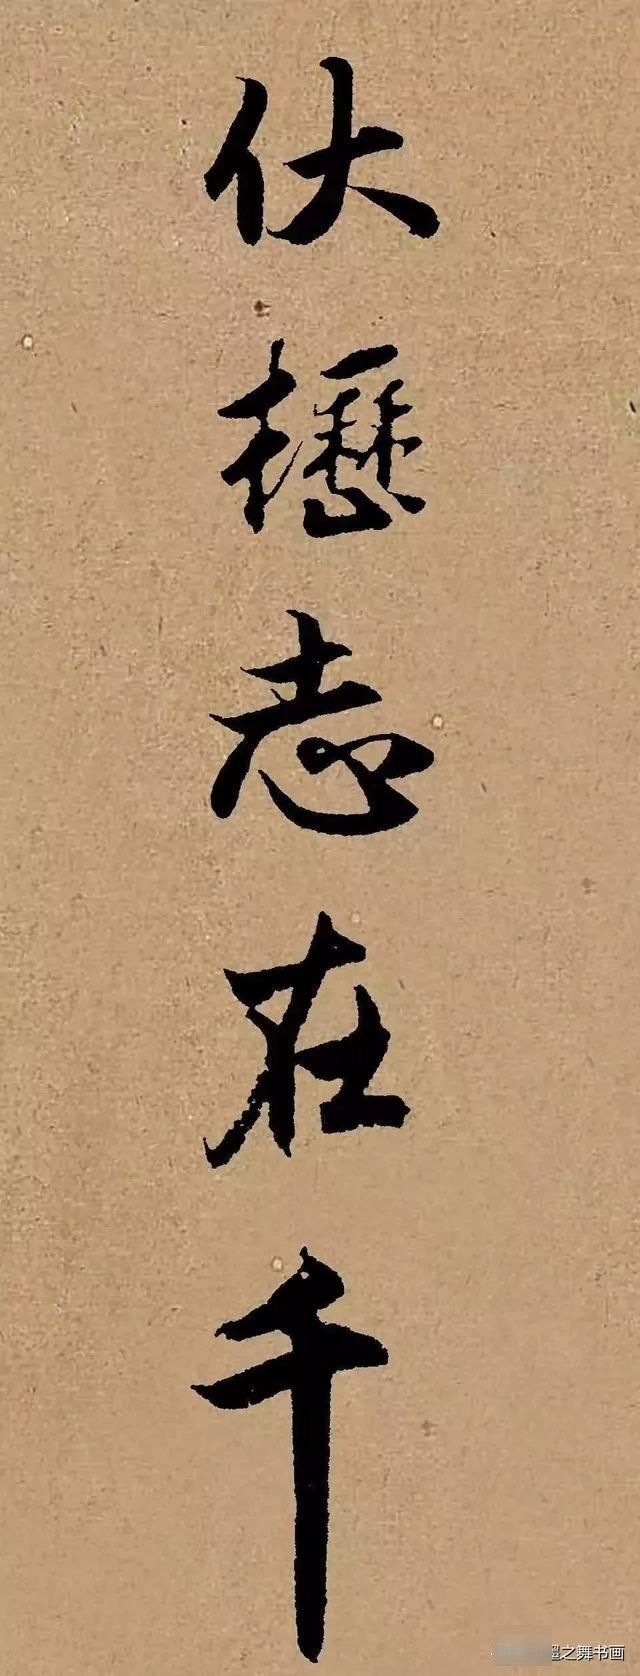 伏櫪志在千
之舞书画